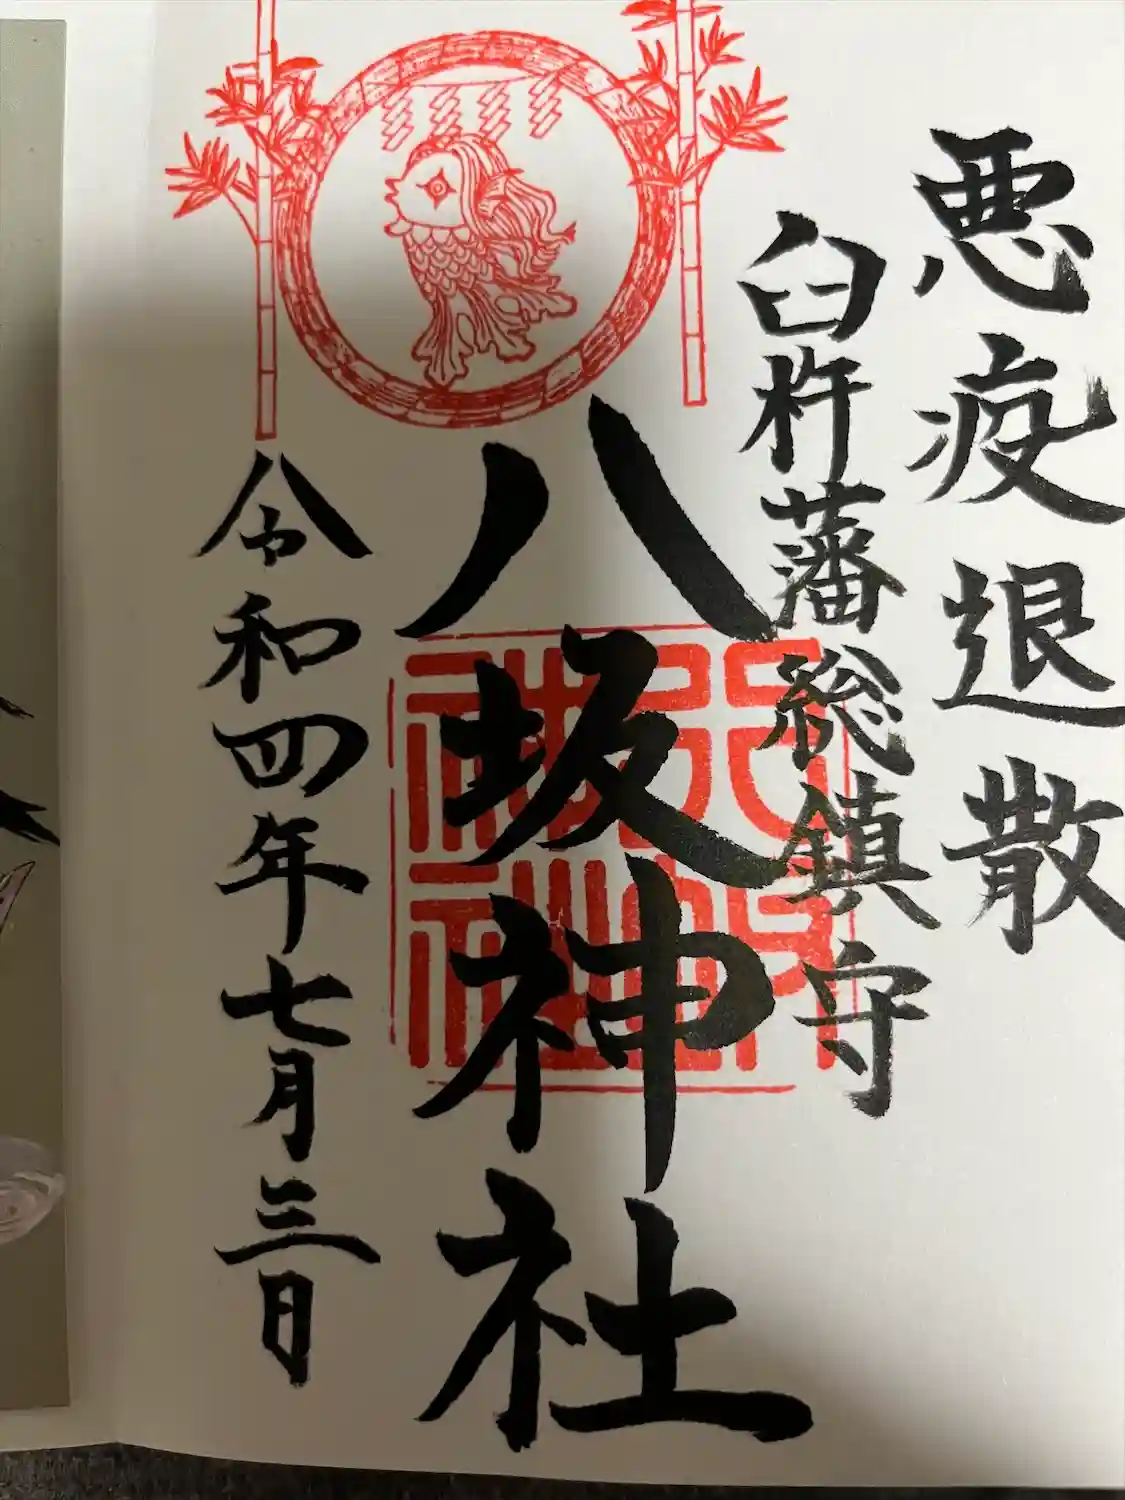 悪疫退散
臼杵藩総鎮守
八坂神社
令和四年七月三日